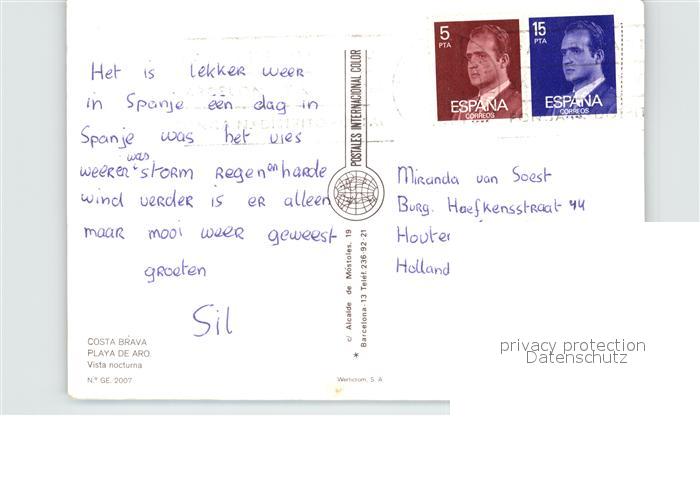 Het is lekker weer
in Spanje één dag in
Spanje was het vies
weer er was storm regen en harde
wind verder is er alleen
maar mooi weer geweest
groeten
Sil
COSTA BRAVA
PLAYA DE ARO.
Vista nocturna
N.º GE. 2007
POSTALES INTERNACIONAL COLOR
c/ Alcalde de Móstoles, 19
Barcelona-13 Teléf: 236-92-21
*
Werticrom, S. A
5
PTA
ESPAÑA
CORREOS
15
PTA
ESPAÑA
CORREOS
Miranda van Soest
Burg. Haefkensstraat 44
Houte
Holland
privacy protection
Datenschutz